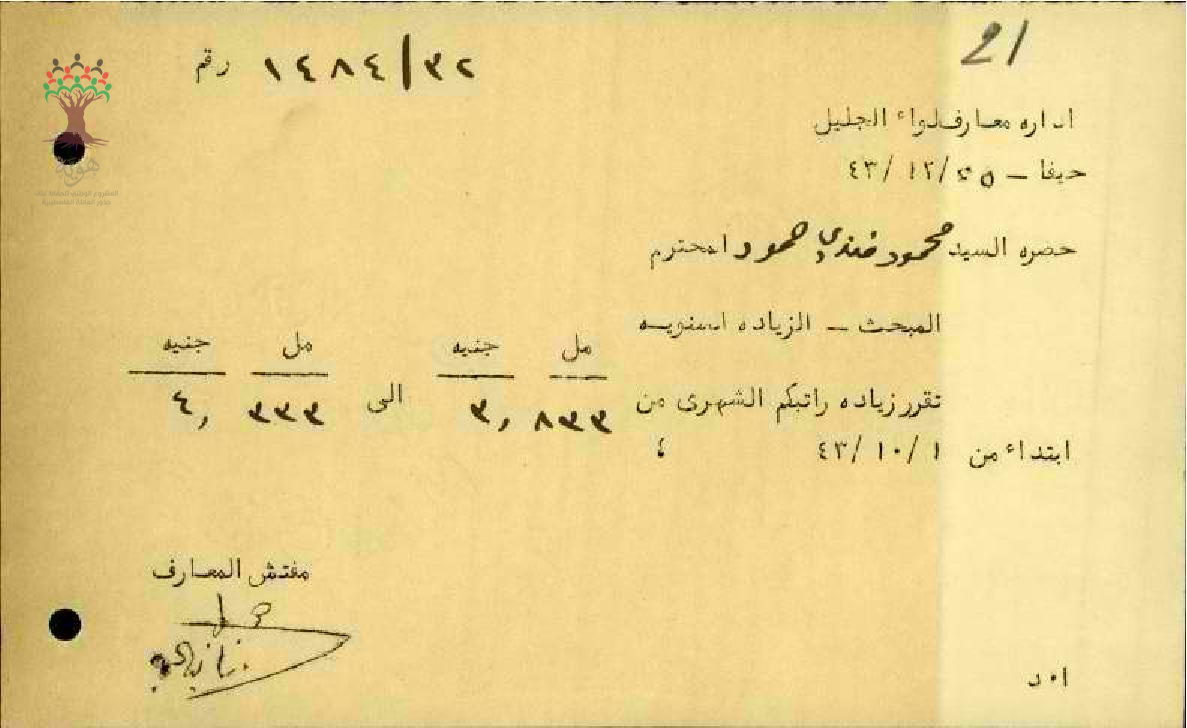 21
رقم ١٤٨٤/٣٢
اداره معارف لواء الجليل
حيفا - ٢٥/ ١٢/ ٤٣
حضره السيد محمود فندي حمود المحترم
المبحث - الزياده السنويه
مل جنيه مل جنيه
تقرر زياده راتبكم الشهرى من ٨٣٣ ٣, الى ٣٣٣ ٤,
ابتداء من ١/ ١٠/ ٤٣ ؛
مفتش المعارف
اٴ د
هوية